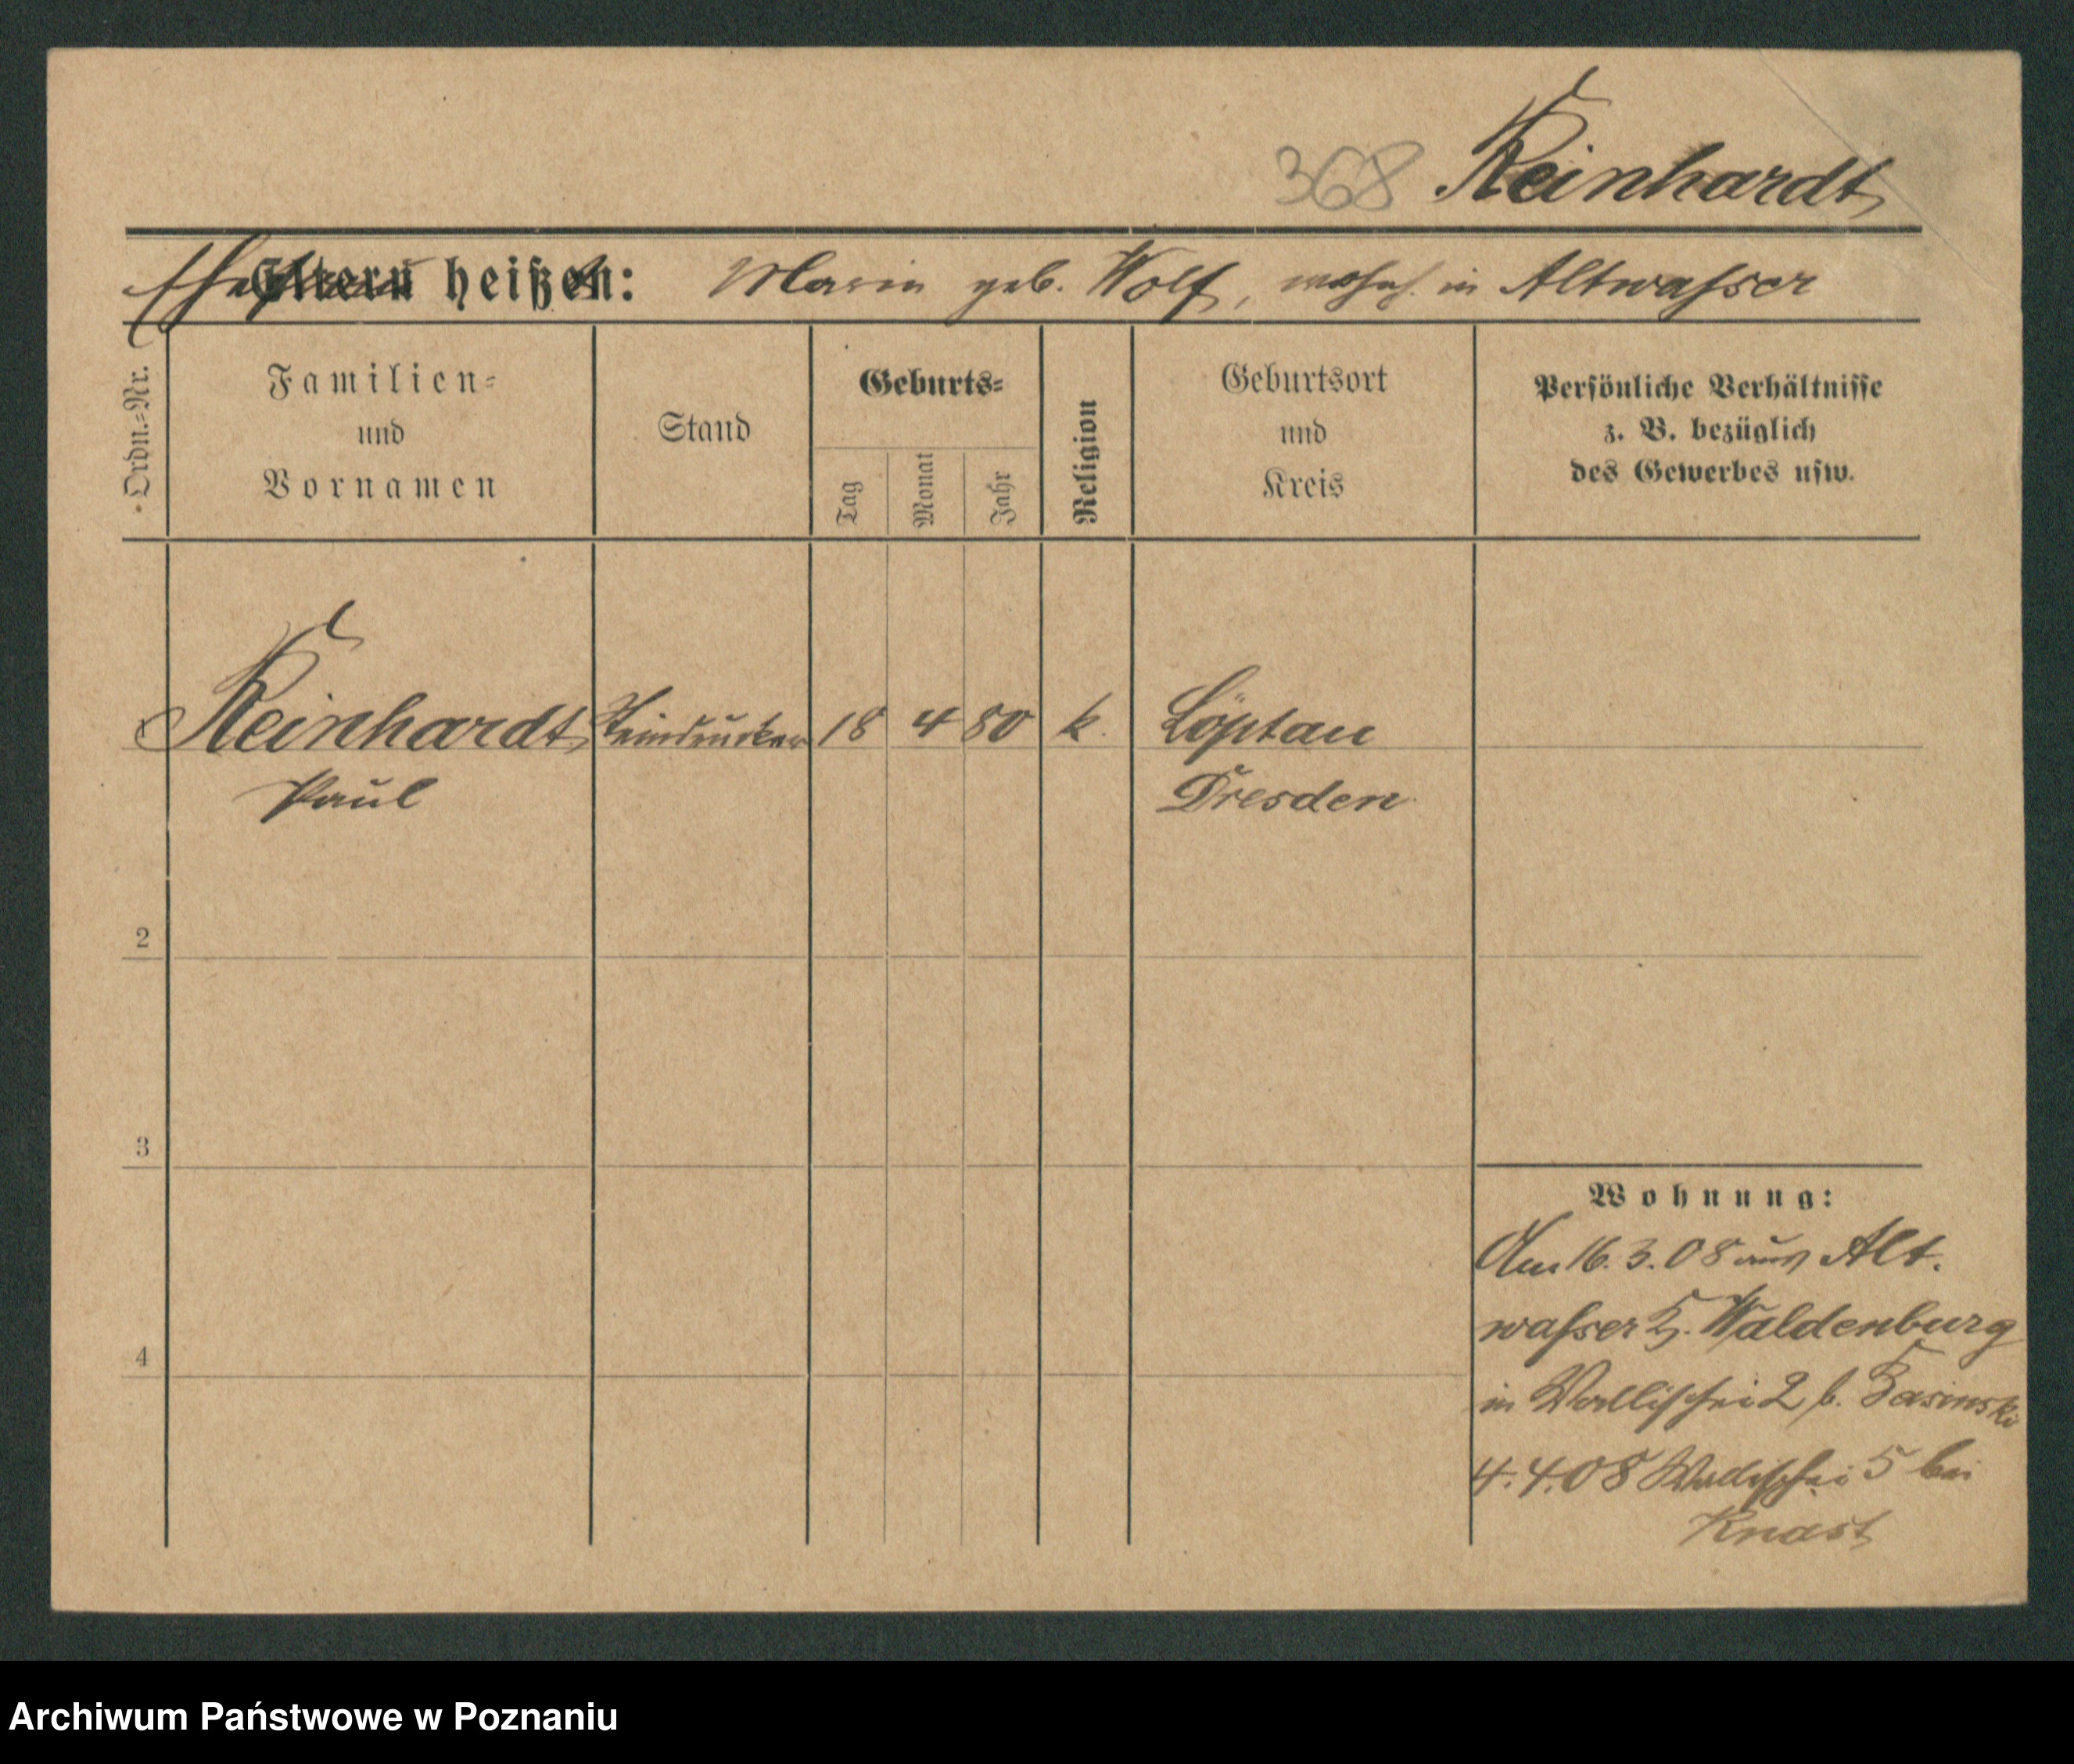 368 Reinhardt
Ehefrau Eltern heißen: Maria geb. Wolf, wohnh. in Altwasser
Ordn.=Nr.
Familien=
und
Vornamen
Stand
Geburts=
Tag
Monat
Jahr
Religion
Geburtsort
und
Kreis
Persönliche Verhältnisse
z. B. bezüglich
des Gewerbes usw.
1 Reinhardt Steindrucker 18 4 80 k. Löptau
Paul Dresden
2
3
4
Wohnung:
Am 16.3.08 aus Alt.
wasser Kr. Waldenburg
in Wallischei 2 b. Basinski
4.4.08 Wallischei 5 bei
Knast
Archiwum Państwowe w Poznaniu